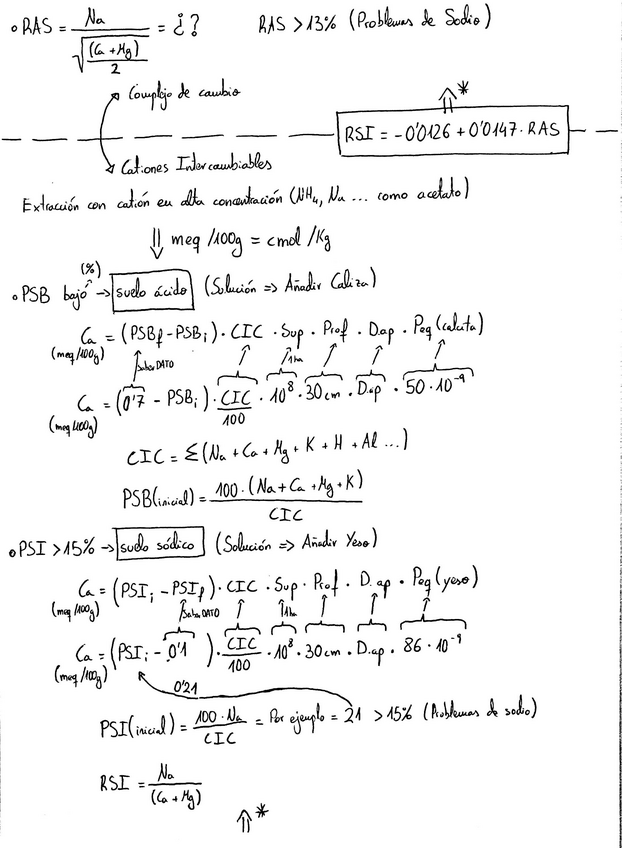 ∘ RAS = Na / √((Ca + Mg)/2) = ¿? RAS > 13% (Problemas de Sodio)
Complejo de cambio
⇑*
RSI = -0'0126 + 0'0147 · RAS
Cationes Intercambiables
Extracción con catión en alta concentración (NH4, Na ... como acetato)
⇓ meq /100g = cmol /Kg
(%)
∘ PSB bajo → suelo ácido (Solución => Añadir Caliza)
Ca = (PSBf - PSBi) · CIC · Sup · Prof · Dap · Peq (calcita)
(meq/100g) Saber DATO 1ha
Ca = (0'7 - PSBi) · CIC/100 · 10^8 · 30cm · Dap · 50 · 10^-9
(meq/100g)
CIC = Σ (Na + Ca + Mg + K + H + Al ...)
PSB(inicial) = 100 · (Na + Ca + Mg + K) / CIC
∘ PSI > 15% → suelo sódico (Solución => Añadir Yeso)
Ca = (PSIi - PSIf) · CIC · Sup · Prof · D.ap · Peq (yeso)
(meq/100g) Saber DATO 1ha
Ca = (PSIi - 0'1) · CIC/100 · 10^8 · 30cm · D.ap · 86 · 10^-9
(meq/100g)
0'21
PSI(inicial) = 100 · Na / CIC = Por ejemplo = 21 > 15% (Problemas de sodio)
RSI = Na / (Ca + Mg)
⇑*